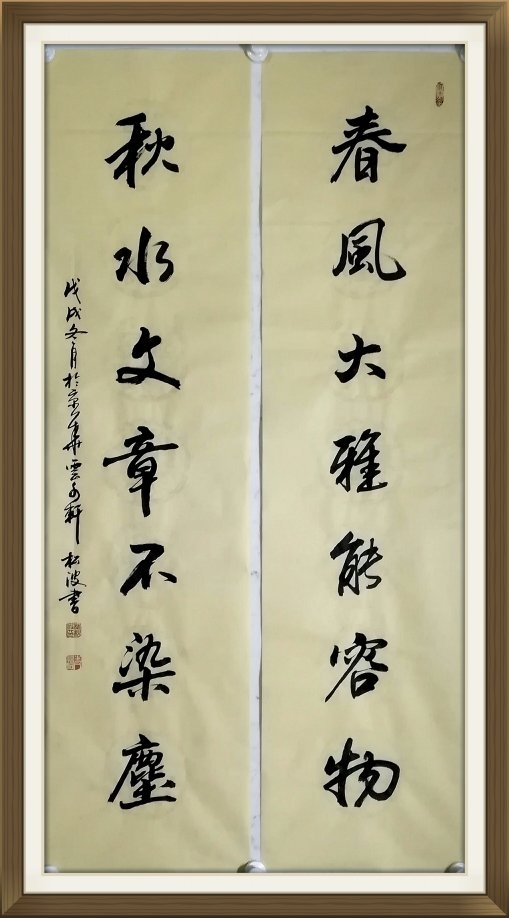 春風大雅能容物
秋水文章不染塵
戊戌冬月於京華雲水軒 松波書